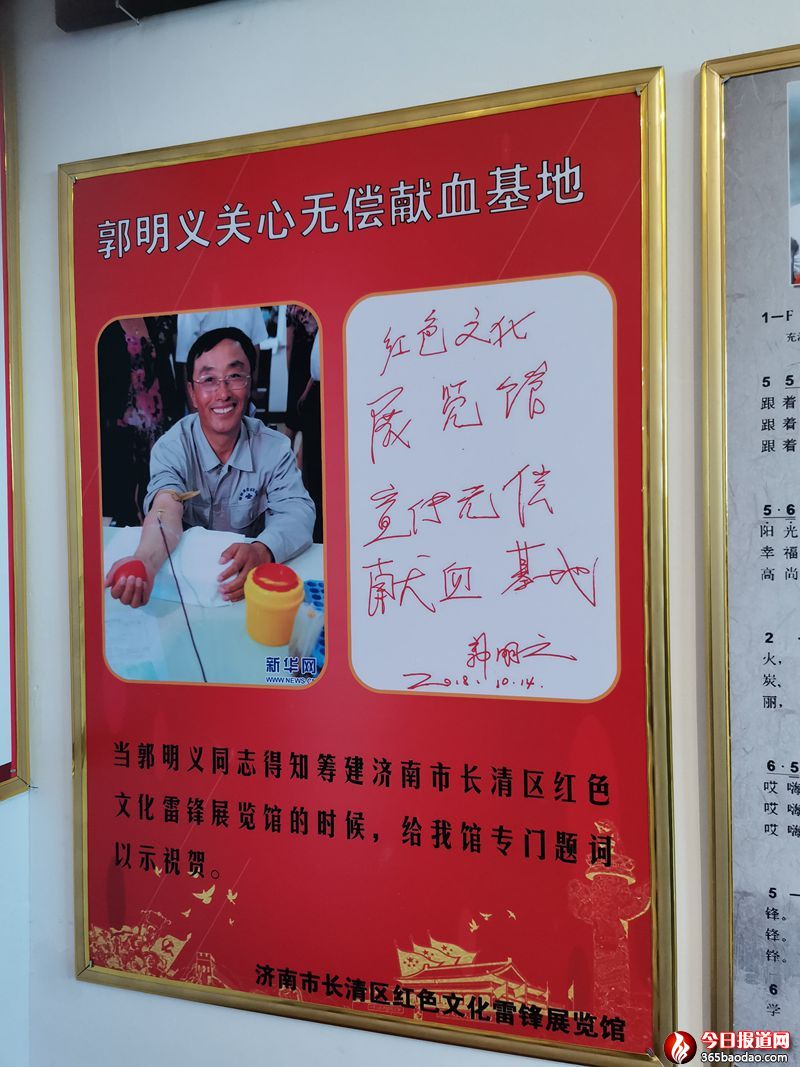 郭明义关心无偿献血基地
红色文化
展览馆
宣传无偿
献血基地
郭明义
2018.10.14.
新华网
WWW.NEWS.CN
当郭明义同志得知筹建济南市长清区红色
文化雷锋展览馆的时候，给我馆专门题词
以示祝贺。
济南市长清区红色文化雷锋展览馆
1—F
5 5
跟着
跟着
跟着
5·6
阳光
幸福
高尚
2 -
火，
炭、
丽，
6·5
哎嗨
哎嗨
哎嗨
5 —
锋。
锋。
锋。
6
学
今日报道网
365baodao.com